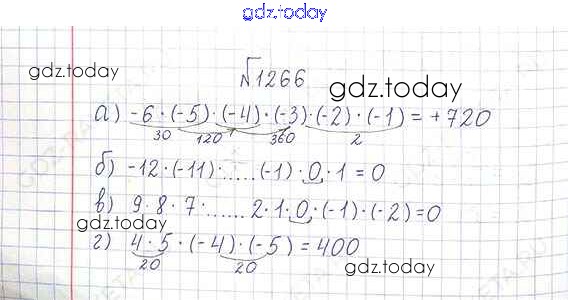 gdz.today
№1266
gdz.today
gdz.today
а) -6 · (-5) · (-4) · (-3) · (-2) · (-1) = +720
30 120 360 2
б) -12 · (-11) · ...... (-1) · 0 · 1 = 0
в) 9 · 8 · 7 · ...... 2 · 1 · 0 · (-1) · (-2) = 0
gdz.today
г) 4 · 5 · (-4) · (-5) = 400
20 20
gdz.today